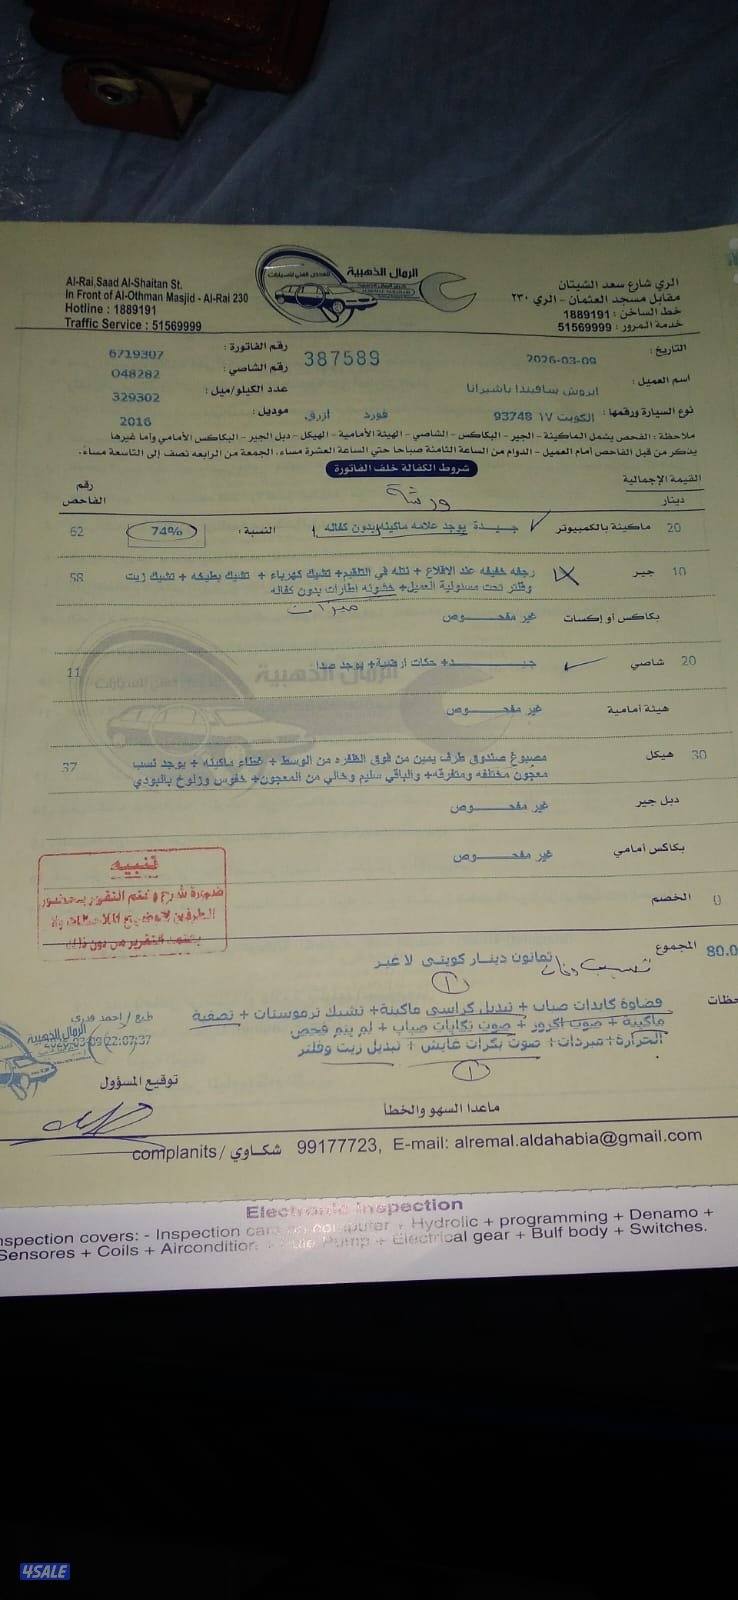 Al-Rai,Saad Al-Shaitan St.
In Front of Al-Othman Masjid - Al-Rai 230
Hotline : 1889191
Traffic Service : 51569999
الرمال الذهبية
للفحص الفني للسيارات
الري شارع سعد الشيتان
مقابل مسجد العثمان - الري ٢٣٠
خط الساخن : 1889191
خدمة المرور : 51569999
التاريخ : 2026-03-09
387589
رقم الفاتورة : 6719307
اسم العميل :
رقم الشاصي : 048282
نوع السيارة ورقمها : الكويت ١٧ 93748 فورد ازرق
عدد الكيلو/ميل : 329302
موديل : 2016
ملاحظة : الفحص يشمل الماكينة - الجير - البكاكس - الشاصي - الهيئة الأمامية - الهيكل - دبل الجير - البكاكس الأمامي وأما غيرها
يذكر من قبل الفاحص أمام العميل - الدوام من الساعة الثامنة صباحا حتى الساعة العشرة مساء، الجمعة من الرابعه نصف إلى التاسعة مساء.
شروط الكفالة خلف الفاتورة
القيمة الإجمالية
دينار
رقم
الفاحص
ورشة
20 ماكينة بالكمبيوتر جيـــدة يوجد علامه ماكينه بدون كفاله النسبة : 74% 62
10 جير رجفه خفيفه عند الاقلاع + نتله في التلقيم + تشيك كهرباء + تشيك بطيخه + تشيك زيت
وفلتر تحت مسئولية العميل + خشونه اطارات بدون كفاله 58
بكاكس أو إكسات غير مفحـــوص
20 شاصي جيـــد + حكات أرضية + يوجد صدا 11
هيئة أمامية غير مفحـــوص
30 هيكل مصبوغ صندوق طرف يمين من فوق الظفره من الوسط + غطاء ماكينه + يوجد نسب
معجون مختلفه ومتفرقه + والباقي سليم وخالي من المعجون + خفوس وزلوخ بالبودي 37
دبل جير غير مفحـــوص
بكاكس أمامي غير مفحـــوص
الخصم 0
تنبيه
ضرورة شرح وختم التقرير بحضور
الطرفين
يعتمد التقرير من دون ذلك
المجموع 80.0
ثمانون دينار كويتي لا غير
قضاوة كايدات صباب + تبديل كراسي ماكينة + تشيك ثرموستات + تصفية
ماكينة + صوت اكزوز + صوت تكايات صباب + لم يتم فحص
الحرارة + مبردات + صوت بكرات قايش + تبديل زيت وفلتر
طبع / احمد قدري
2026-03-09 22:07:37
توقيع المسؤول
ماعدا السهو والخطأ
complanits / شكـاوي 99177723, E-mail: alremal.aldahabia@gmail.com
Electronic Inspection
nspection covers: - Inspection cars on computer + Hydrolic + programming + Denamo +
Sensores + Coils + Aircondition + Pump + Electrical gear + Bulf body + Switches.
4SALE